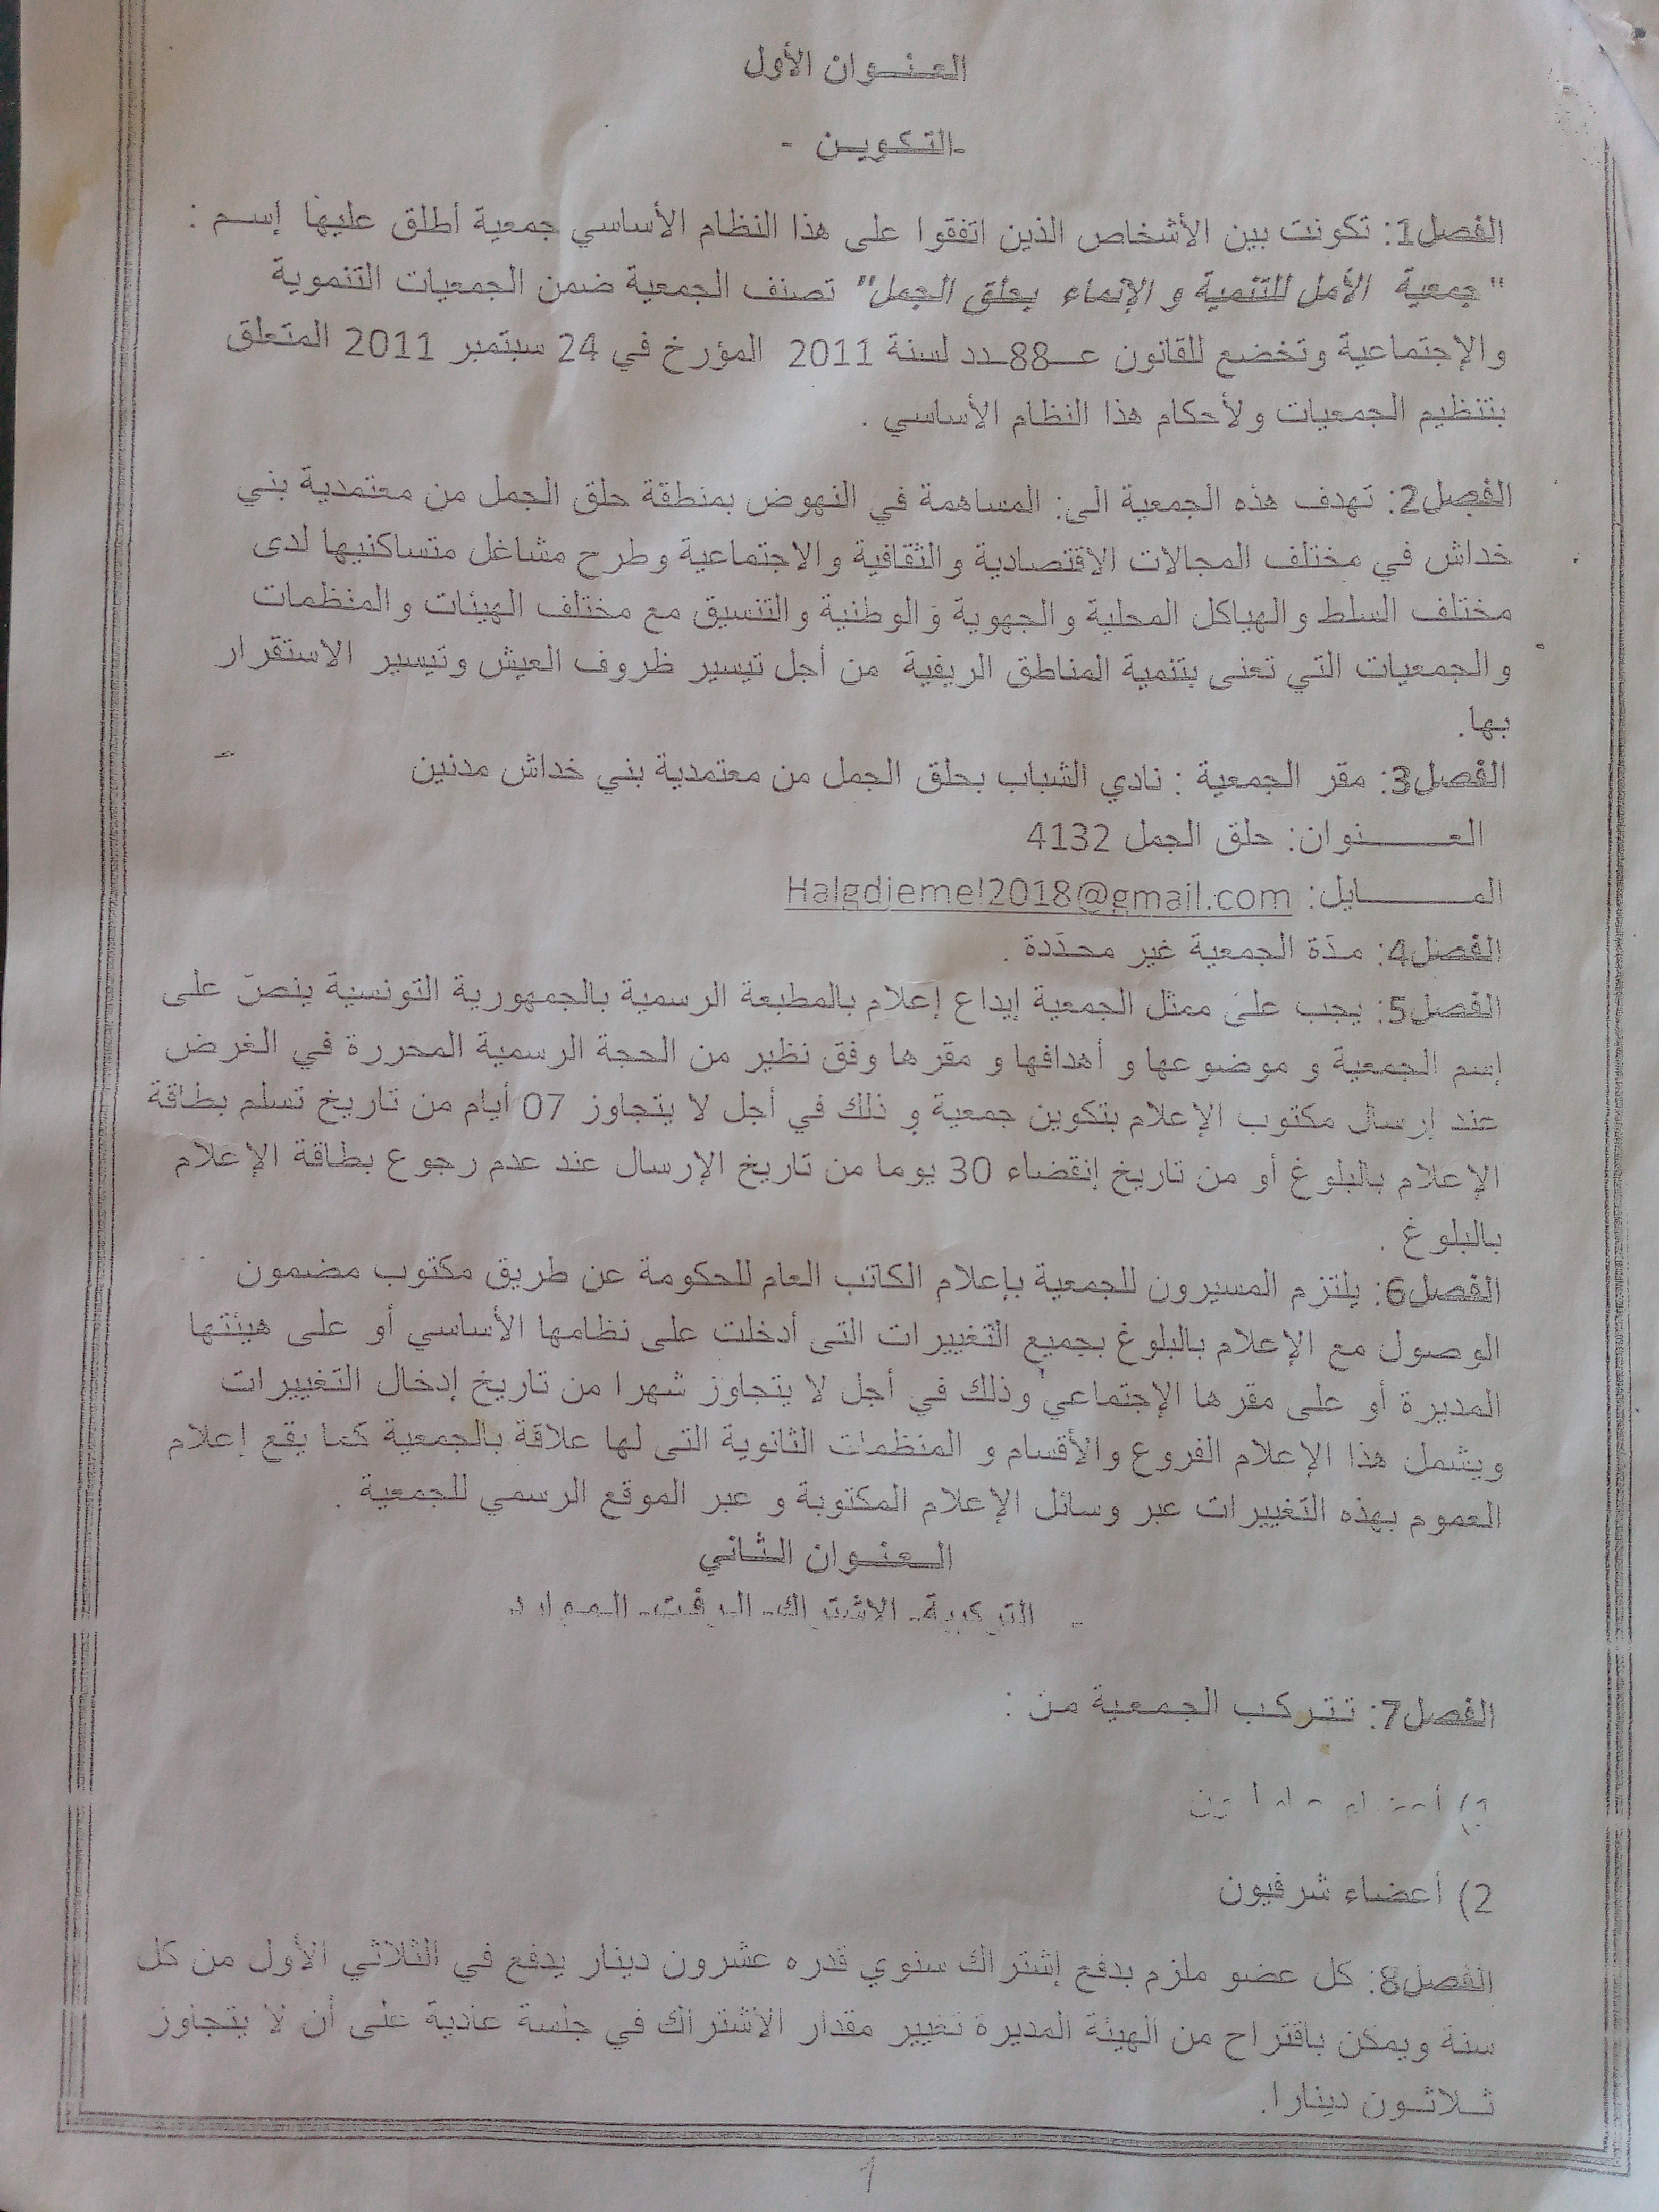 العنوان الأول
-التكوين -
الفصل1: تكونت بين الأشخاص الذين اتفقوا على هذا النظام الأساسي جمعية أطلق عليها إسم :
"جمعية الأمل للتنمية و الإنماء بحلق الجمل" تصنف الجمعية ضمن الجمعيات التنموية
والإجتماعية وتخضع للقانون عـ88ـدد لسنة 2011 المؤرخ في 24 سبتمبر 2011 المتعلق
بتنظيم الجمعيات ولأحكام هذا النظام الأساسي .
الفصل2: تهدف هذه الجمعية الى: المساهمة في النهوض بمنطقة حلق الجمل من معتمدية بني
خداش في مختلف المجالات الاقتصادية والثقافية والاجتماعية وطرح مشاغل متساكنيها لدى
مختلف السلط والهياكل المحلية والجهوية والوطنية والتنسيق مع مختلف الهيئات والمنظمات
والجمعيات التي تعنى بتنمية المناطق الريفية من أجل تيسير ظروف العيش وتيسير الاستقرار
بها.
الفصل3: مقر الجمعية : نادي الشباب بحلق الجمل من معتمدية بني خداش مدنين
العـــــنوان: حلق الجمل 4132
المـــــايل: Halgdjemel2018@gmail.com
الفصل4: مدّة الجمعية غير محدّدة .
الفصل5: يجب على ممثل الجمعية إيداع إعلام بالمطبعة الرسمية بالجمهورية التونسية ينصّ على
إسم الجمعية و موضوعها و أهدافها و مقرها وفق نظير من الحجة الرسمية المحررة في الغرض
عند إرسال مكتوب الإعلام بتكوين جمعية و ذلك في أجل لا يتجاوز 07 أيام من تاريخ تسلم بطاقة
الإعلام بالبلوغ أو من تاريخ إنقضاء 30 يوما من تاريخ الإرسال عند عدم رجوع بطاقة الإعلام
بالبلوغ .
الفصل6: يلتزم المسيرون للجمعية بإعلام الكاتب العام للحكومة عن طريق مكتوب مضمون
الوصول مع الإعلام بالبلوغ بجميع التغييرات التى أدخلت على نظامها الأساسي أو على هيئتها
المديرة أو على مقرها الإجتماعي وذلك في أجل لا يتجاوز شهرا من تاريخ إدخال التغييرات
ويشمل هذا الإعلام الفروع والأقسام و المنظمات الثانوية التى لها علاقة بالجمعية كما يقع إعلام
العموم بهذه التغييرات عبر وسائل الإعلام المكتوبة و عبر الموقع الرسمي للجمعية .
العنوان الثاني
- التركيبة- الاشتراك- الرفت- الموارد
الفصل7: تتركب الجمعية من :
1) أعضاء
2) أعضاء شرفيون
الفصل8: كل عضو ملزم بدفع إشتراك سنوي قدره عشرون دينار يدفع في الثلاثي الأول من كل
سنة ويمكن باقتراح من الهيئة المديرة تغيير مقدار الاشتراك في جلسة عادية على أن لا يتجاوز
ثلاثون دينارا.
1